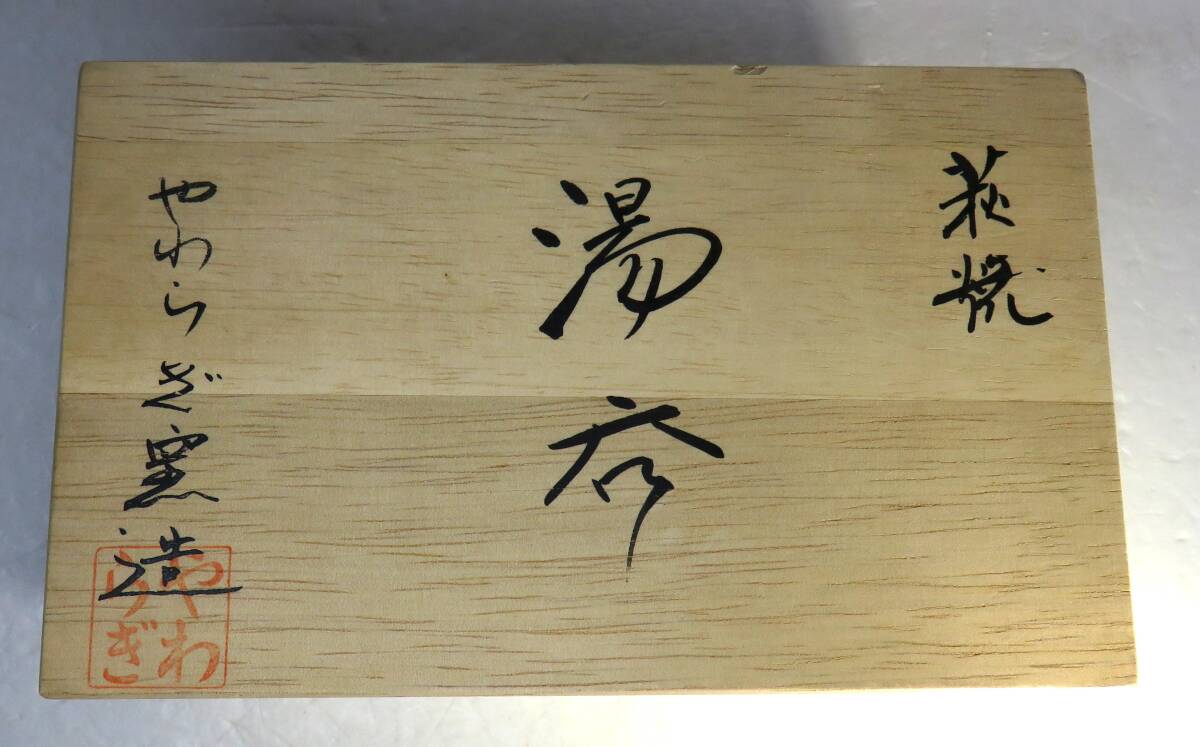 萩焼
湯呑
やわらぎ窯造
やわらぎ